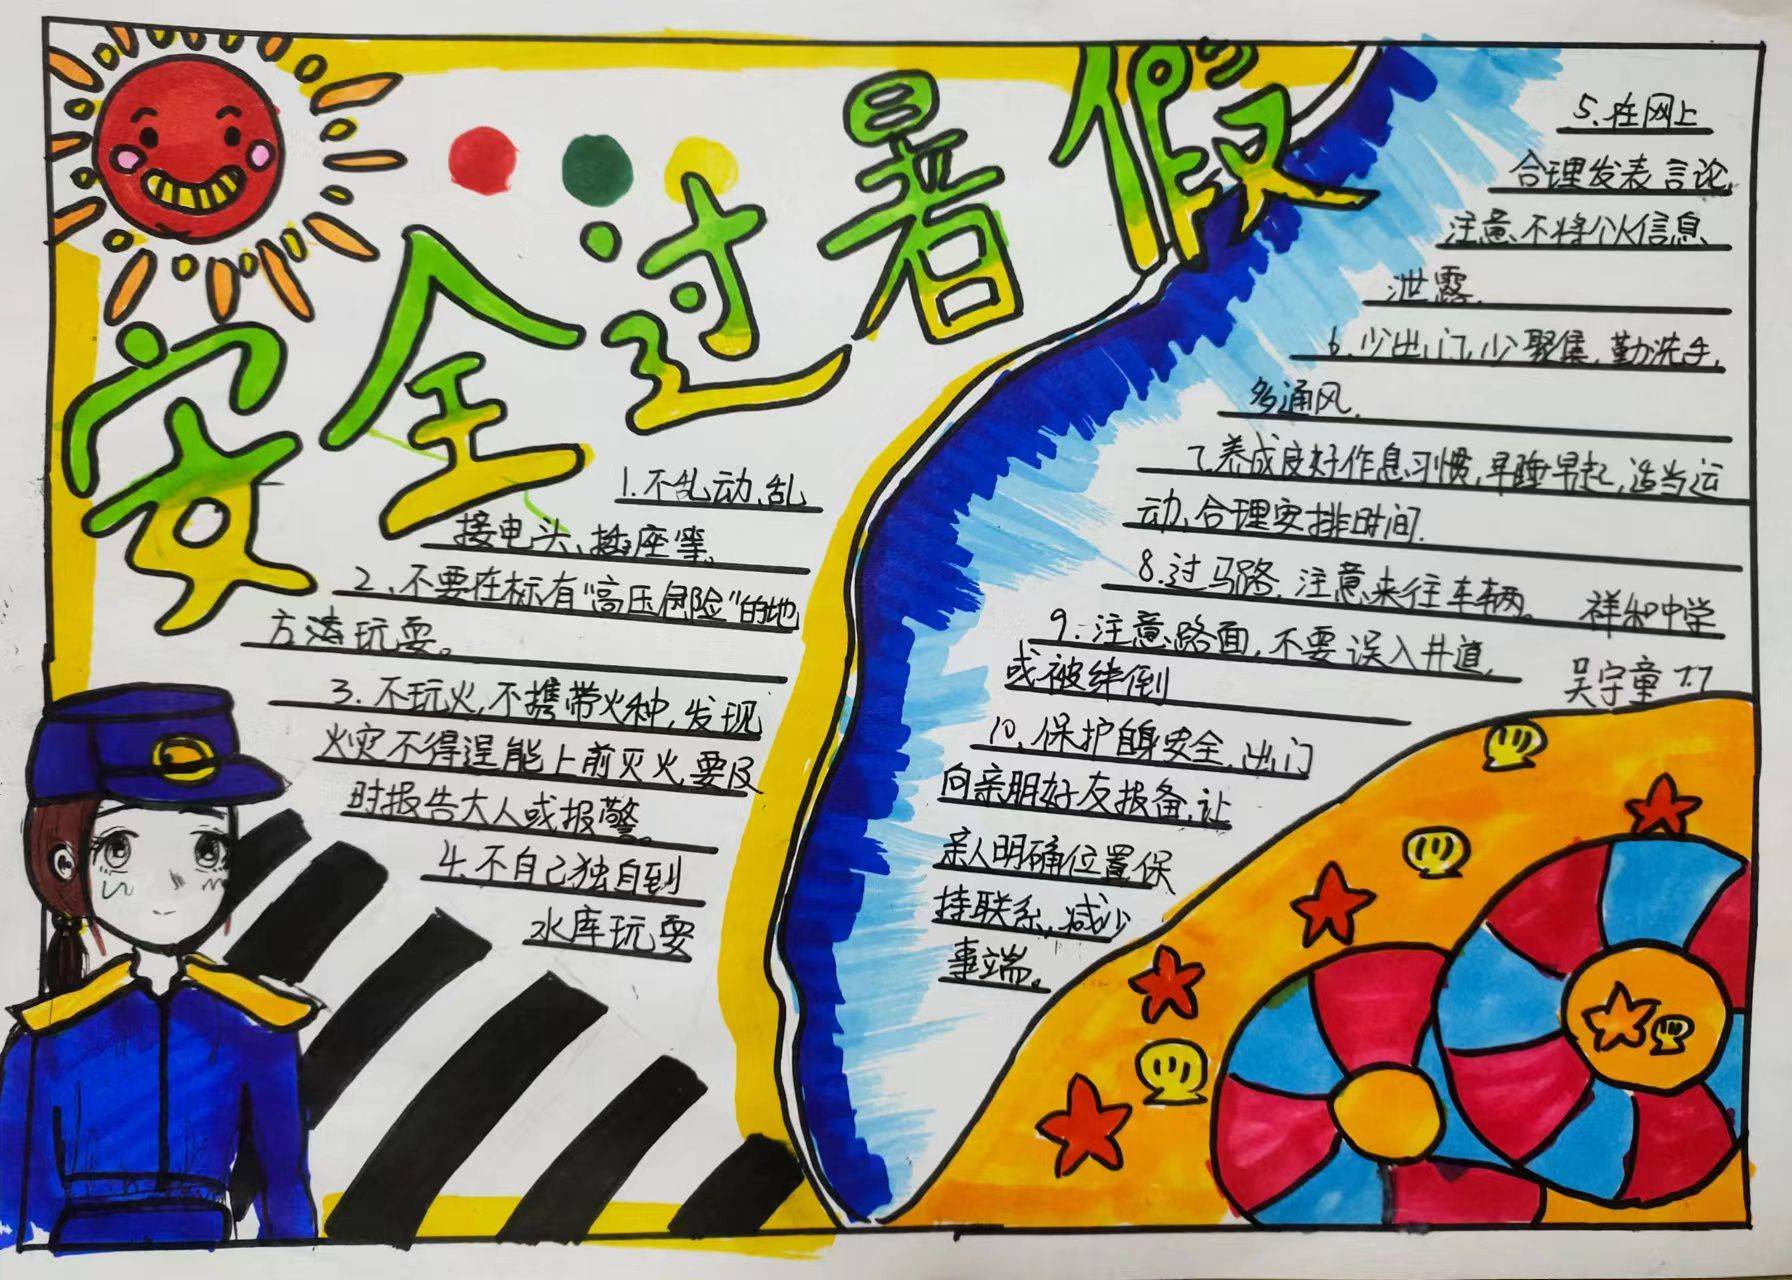 安全过暑假
1.不乱动、乱
接电头、插座等.
2.不要在标有"高压危险"的地
方法玩耍。
3.不玩火,不携带火种,发现
火灾不得逞能上前灭火,要及
时报告大人或报警。
4.不自己独自到
水库玩耍
5.在网上
合理发表言论,
注意不将个人信息
泄露.
6.少出门,少聚集,勤洗手,
多通风.
7.养成良好作息习惯,早睡早起,适当运
动、合理安排时间.
8.过马路,注意来往车辆。
9.注意路面,不要误入井道,
或被绊倒
10.保护自身安全,出门
向亲朋好友报备,让
亲人明确位置保
持联系,减少
事端。
祥和中学
吴宇童 7.7